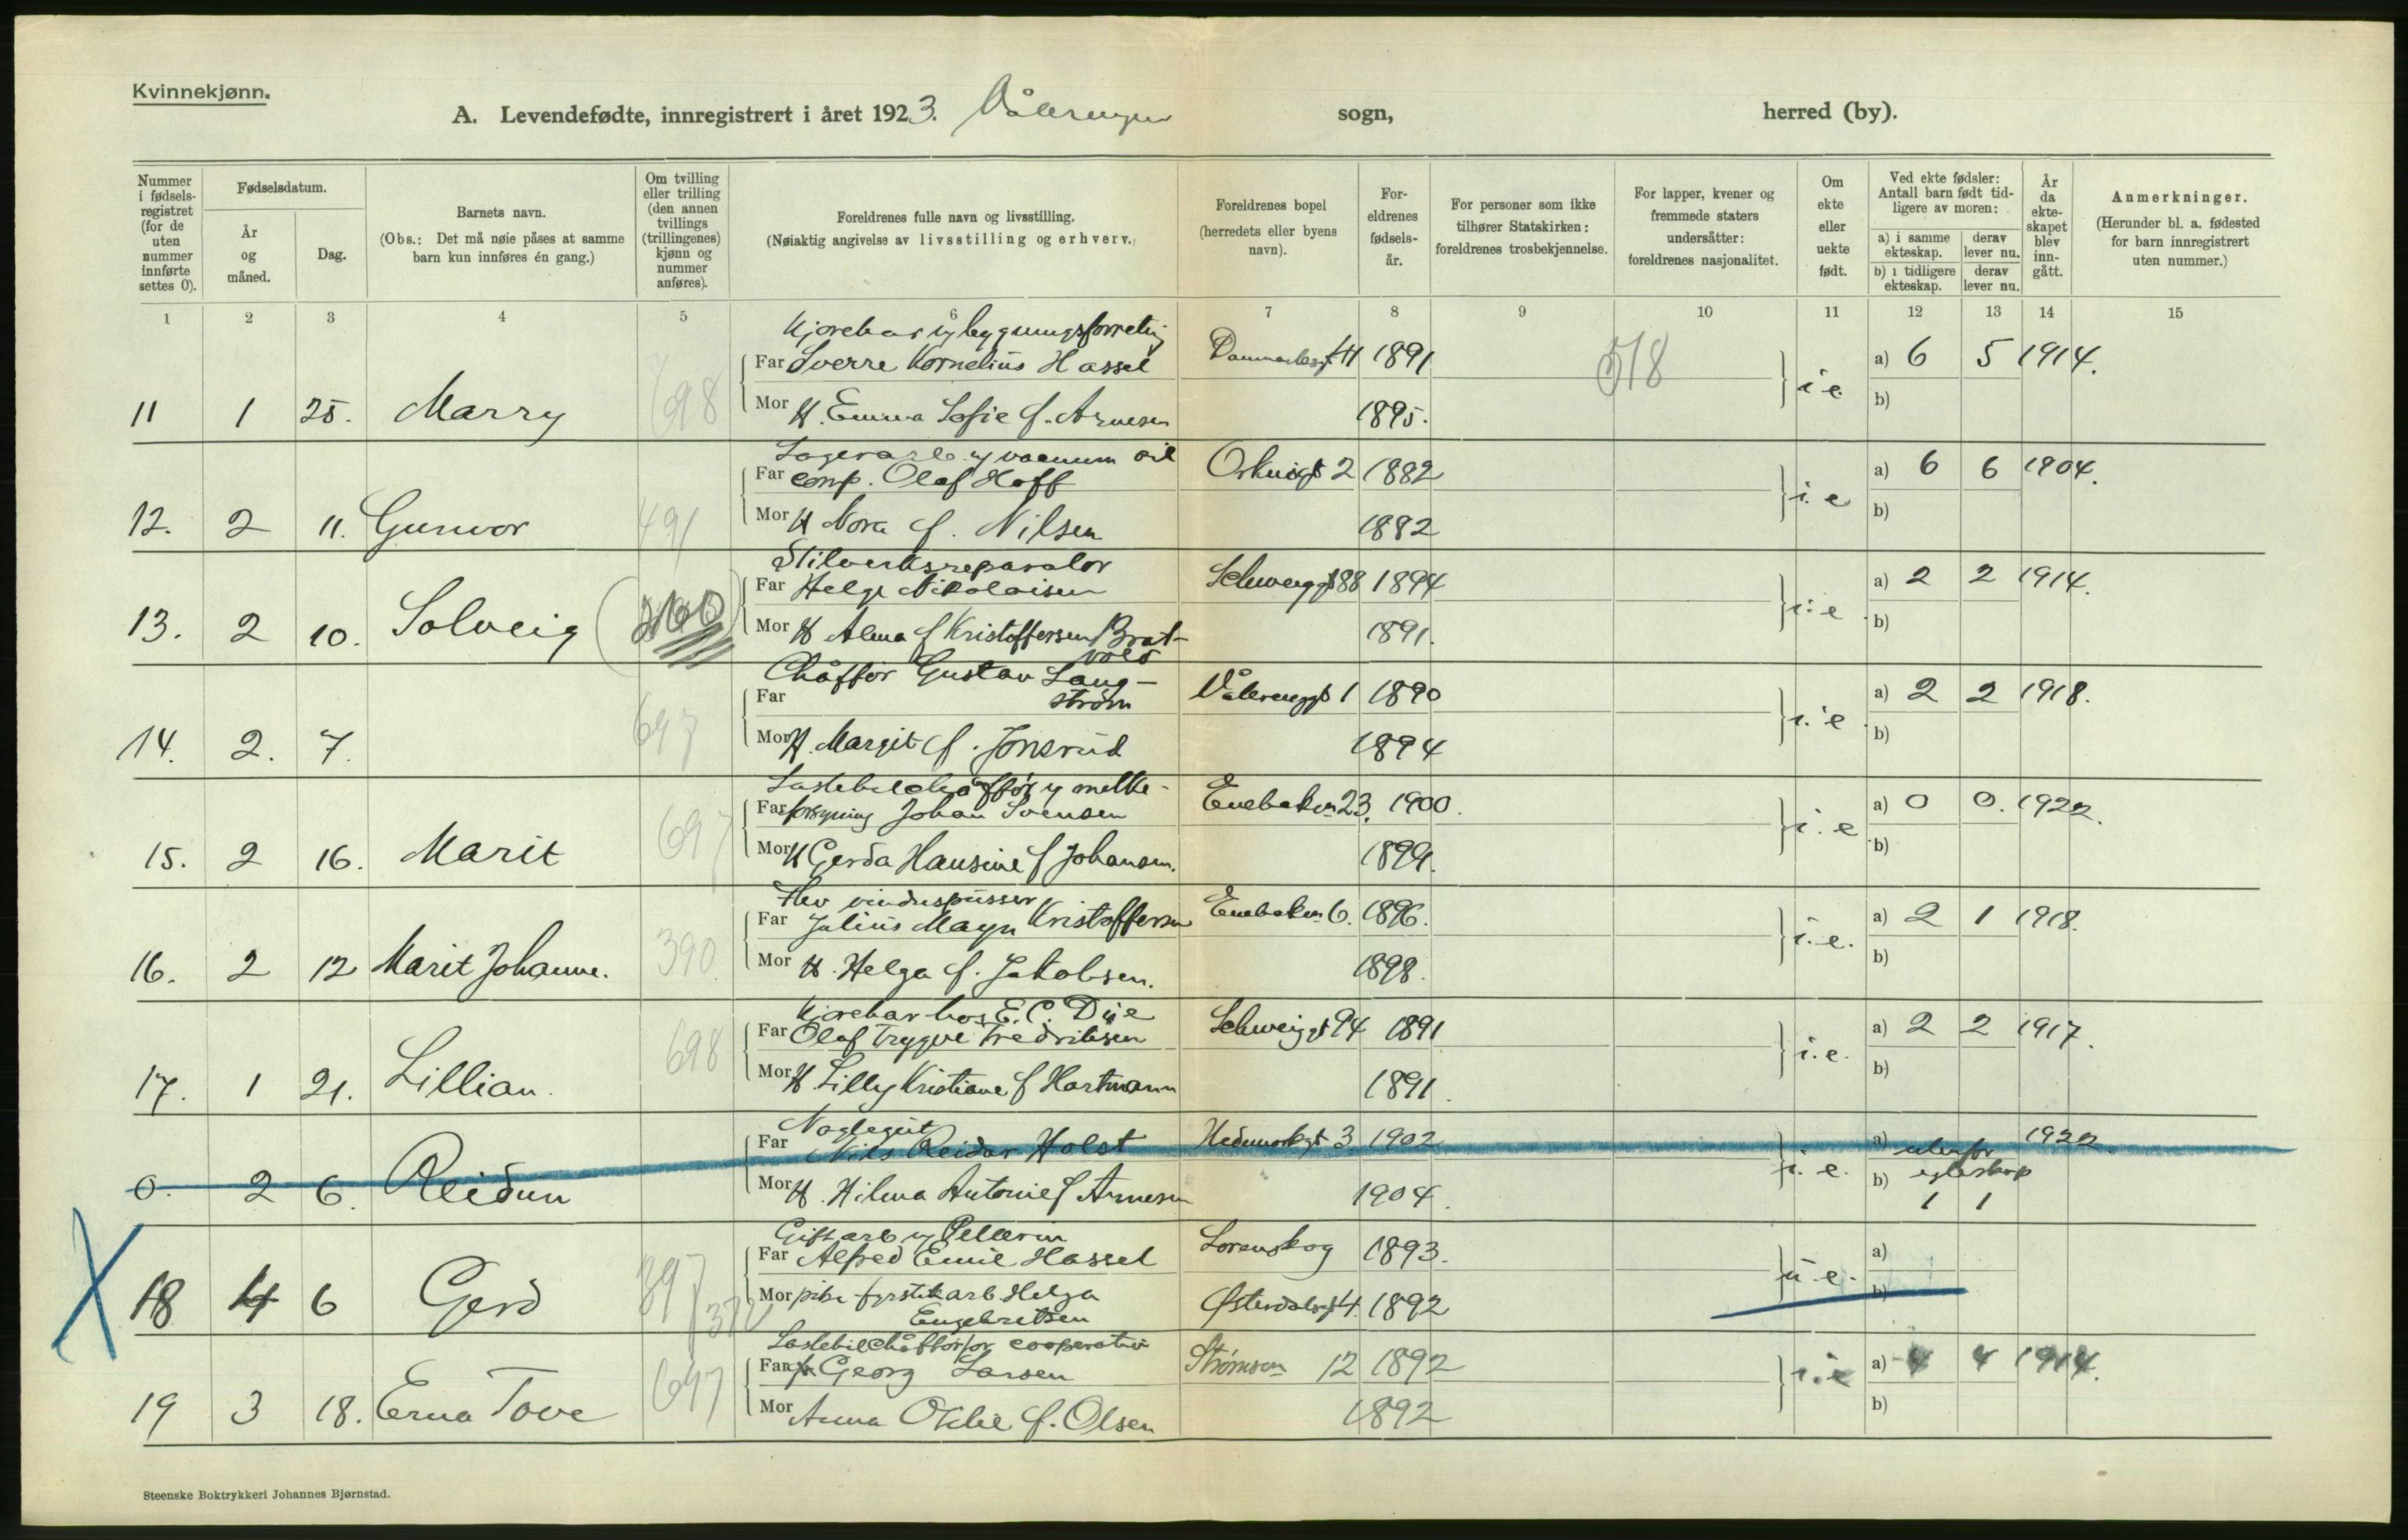 Kvinnekjønn.
A. Levendefødte, innregistrert i året 1923. Vålerengen sogn, herred (by).
Nummer i fødsels-registret (for de uten nummer innførte settes 0).
Fødselsdatum.
År og måned.
Dag.
Barnets navn.
(Obs.: Det må nøie påses at samme barn kun innføres én gang.)
Om tvilling eller trilling (den annen tvillings (trillingenes) kjønn og nummer anføres).
Foreldrenes fulle navn og livsstilling.
(Nøiaktig angivelse av livsstilling og erhverv.)
Foreldrenes bopel (herredets eller byens navn).
For-eldrenes fødsels-år.
For personer som ikke tilhører Statskirken: foreldrenes trosbekjennelse.
For lapper, kvener og fremmede staters undersåtter: foreldrenes nasjonalitet.
Om ekte eller uekte født.
Ved ekte fødsler: Antall barn født tid-ligere av moren:
a) i samme ekteskap. derav lever nu.
b) i tidligere ekteskap. derav lever nu.
År da ekte-skapet blev inn-gått.
Anmerkninger.
(Herunder bl. a. fødested for barn innregistrert uten nummer.)
1 2 3 4 5 6 7 8 9 10 11 12 13 14 15
Far Sverre Kornelius Hassel 1891 518 a) 6 5 1914.
11 1 25. Marry 698 Mor H. Emma Sofie f. Arnesen 1895. i.e b)
Lagerarb. y vacuum oil
Far comp. Olaf Hoff 2 1882 a) 6 6 1904.
12. 2 11. Gunvor 491 Mor H Nora f. Nilsen 1882 i. e b)
Far Helge Nikolaisen Schweiggt 88 1894 a) 2 2 1914.
13. 2 10. Solveig Mor H Alma f Kristoffersen Brat-
vold 1891. i. e b)
Chåffør Gustav Lang-
Far strøm Vålerenggt 1 1890 a) 2 2 1918.
14. 2. 7. 697 Mor H. Margit f. Jonsrud 1894 i. e b)
Lastebilchåffør y melke-
Far forsyning Johan Svensen Enebakvn 23. 1900. a) 0 0. 1922.
15. 2 16. Marit 697 Mor H Gerda Hansine f Johansen. 1899. i. e b)
Far Julius Magn Kristoffersen Enebakvn 6. 1896. a) 2 1 1918.
16. 2 12 Marit Johanne. 390 Mor H. Helga f. Jakobsen. 1898. i. e. b)
Kjørekar hos E. C. Due
Far Olaf Trygve Fredriksen Schweiggt 94 1891 a) 2 2 1917.
17. 1 21. Lillian. 698 Mor H. Lilly Kristiane f Hartmann 1891. i. e. b)
Far Nils Reidar Holst Hedmarkgt 3. 1902 a) utenfor 1922.
0. 2 6. Reidun Mor H. Hilma Antonie f Arnesen 1904. i. e. b) egteskap
1 1
Gift arb y Pellerin
Far Alfred Emil Hassel Lorenskog 1893. a)
18 4 6 Gerd 397 372 Mor pike fyrstikarb Helga
Engebretsen Østerdalsgt 4. 1892 u e. b)
Lastebilchåffør for cooperativ
Far Georg Larsen Strømsvn 12 1892 a) 4 4 1914.
19 3 18. Erna Tove 697 Mor Anna Otilie f. Olsen 1892 i. e b)
Steenske Boktrykkeri Johannes Bjørnstad.